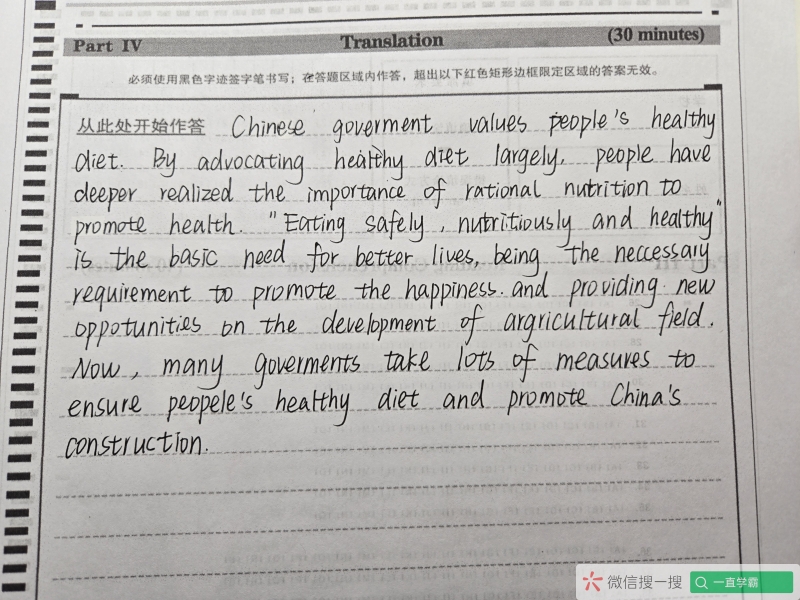 Part IV Translation (30 minutes)
必须使用黑色字迹签字笔书写；在答题区域内作答，超出以下红色矩形边框限定区域的答案无效。
从此处开始作答 Chinese goverment values people's healthy
diet. By advocating healthy diet largely, people have
deeper realized the importance of rational nutrition to
promote health. "Eating safely, nutritiously and healthy"
is the basic need for better lives, being the neccessary
requirement to promote the happiness. and providing new
oppotunities on the development of argricultural field.
Now, many goverments take lots of measures to
ensure peopele's healthy diet and promote China's
construction.
微信搜一搜 一直学霸